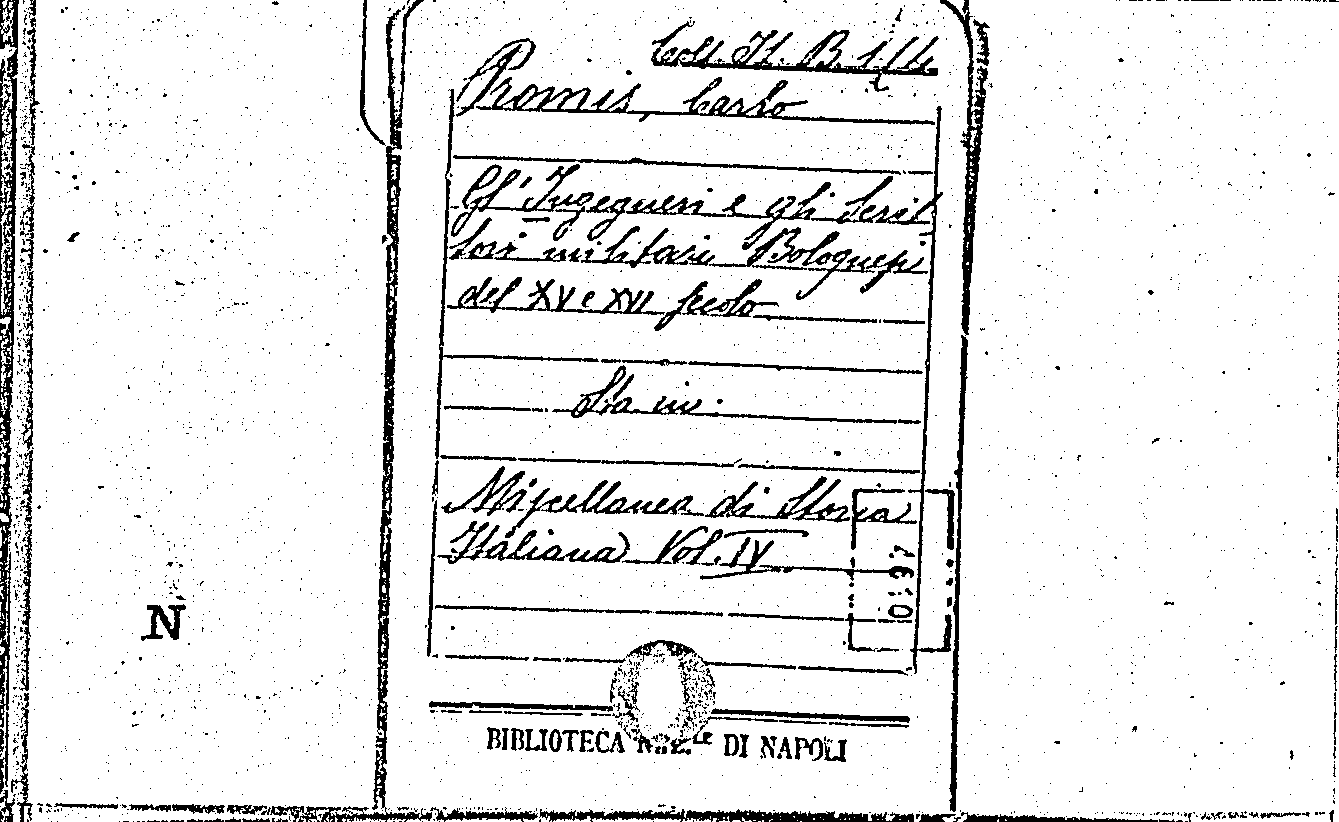 Coll. It. B. 1/4
Promis, Carlo
Gl'Ingegneri e gli Scrit
tori militari Bolognesi
del XV e XVI secolo
Sta in:
Miscellanea di Storia
Italiana Vol. IV
N
BIBLIOTECA DI NAPOLI